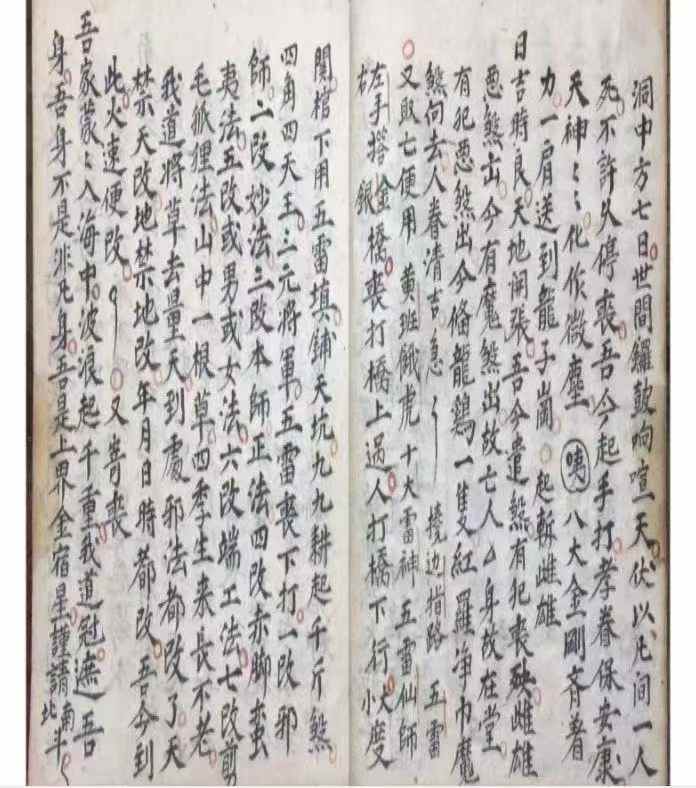 洞中方七日世間鑼鼓响喧天伏以凡间一人
死不許久停喪吾今起手打孝眷保安康
天神〻〻化作微塵 咦 八大金剛齊着
力一肩送到龍子崗 起斬雌雄
日吉時良天地開張吾今遣煞有犯喪殃雌雄
惡煞出今有魔煞出故亡人厶身故在堂
有犯惡煞出今俻龍鷄一隻紅羅净巾魔
煞向去人眷清吉急
又敗亡便用黄班餓虎十大雷神五雷仙師
左手搭金橋喪打橋上過人打橋下行大
右 銀 小度
橈边指路 五雷
開棺下用五雷填鋪天坑九九耕起千斤煞
四角四天王三元將軍五雷喪下打一改邪
師二改妙法三改本師正法四改赤脚蛮
夷法五改或男或女法六改端工法七改剪
毛狐狸法山中一根草四季生来長不老
我道將草去量天到處邪法都改了天
禁天改地禁地改年月日時都改吾今到
此火速便改 又喪
吾家蒙〻入海中波浪起千重我道冠遮吾
身吾身不是非凡身吾是上界金宿星謹請南斗
北